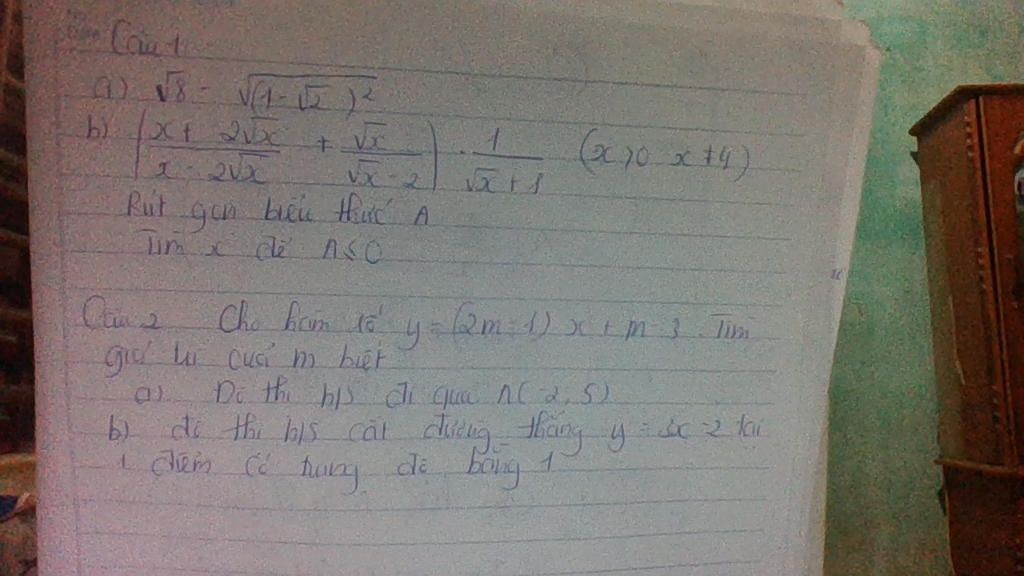 Câu 1
a) √8 - √(1-√2)²
b) (x + 2√x / x - 2√x + √x / √x - 2) . 1 / √x + 1 (x > 0 x ≠ 4)
Rút gọn biểu thức A
Tìm x để A ≤ 0
Câu 2 Cho hàm số y = (2m - 1) x + m - 3. Tìm
giá trị của m biết
a) Đồ thị h/s đi qua A(-2, 5)
b) đồ thị h/s cắt đường thẳng y = x - 2 tại
1 điểm có tung độ bằng 1